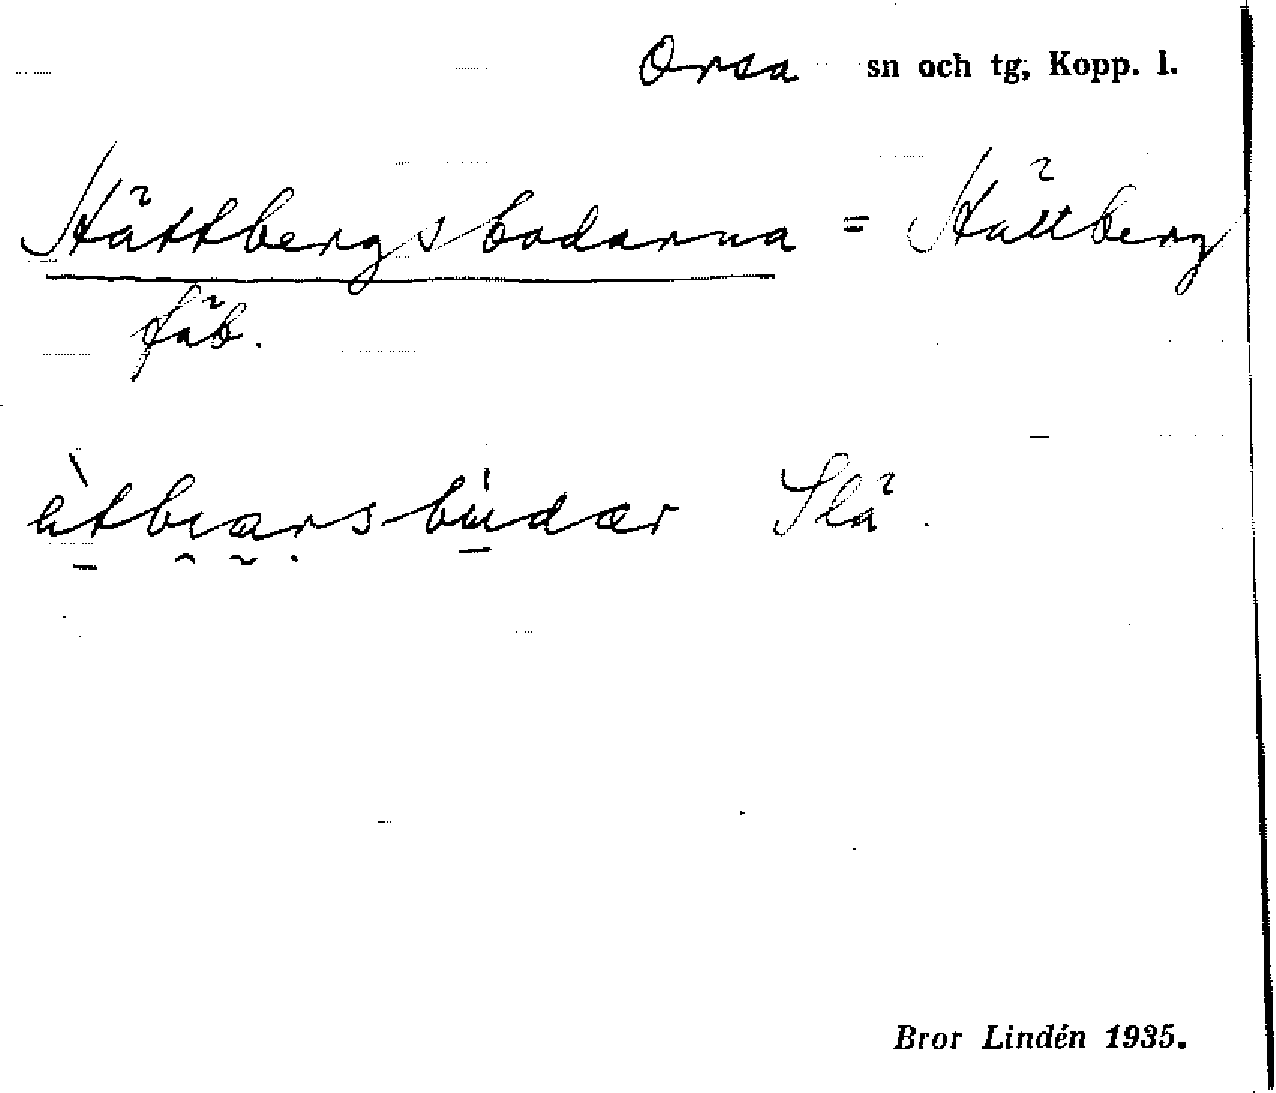 Orsa sn och tg, Kopp. l.
Hättbergsbodarna = Hättberg
fäb.
Slä
Bror Lindén 1935.